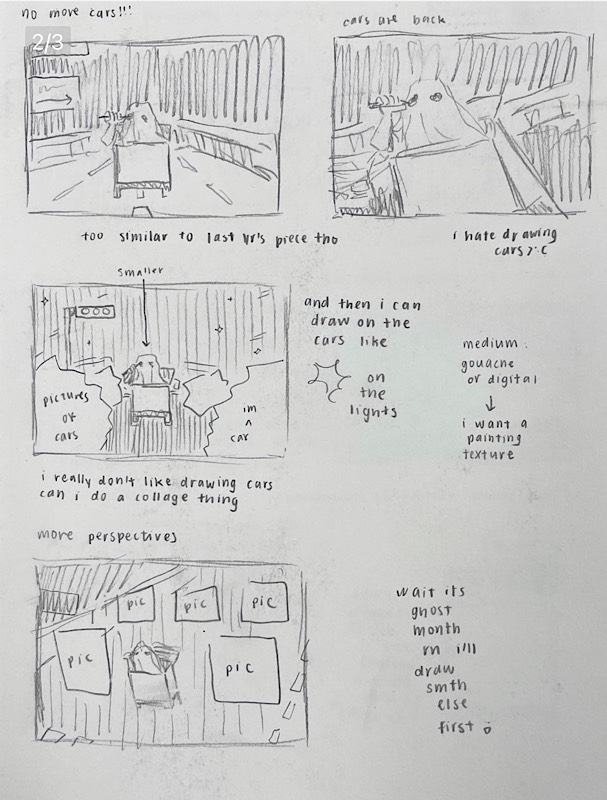 no more cars!!!
2/3
cars are back
too similar to last yr's piece tho
i hate drawing
cars >:c
smaller
and then i can
draw on the
cars like
on
the
lights
medium:
gouache
or digital
i want a
painting
texture
pictures
of
cars
im
^
car
i really don't like drawing cars
can i do a collage thing
more perspectives
pic
pic
pic
pic
pic
wait its
ghost
month
rn i'll
draw
smth
else
first